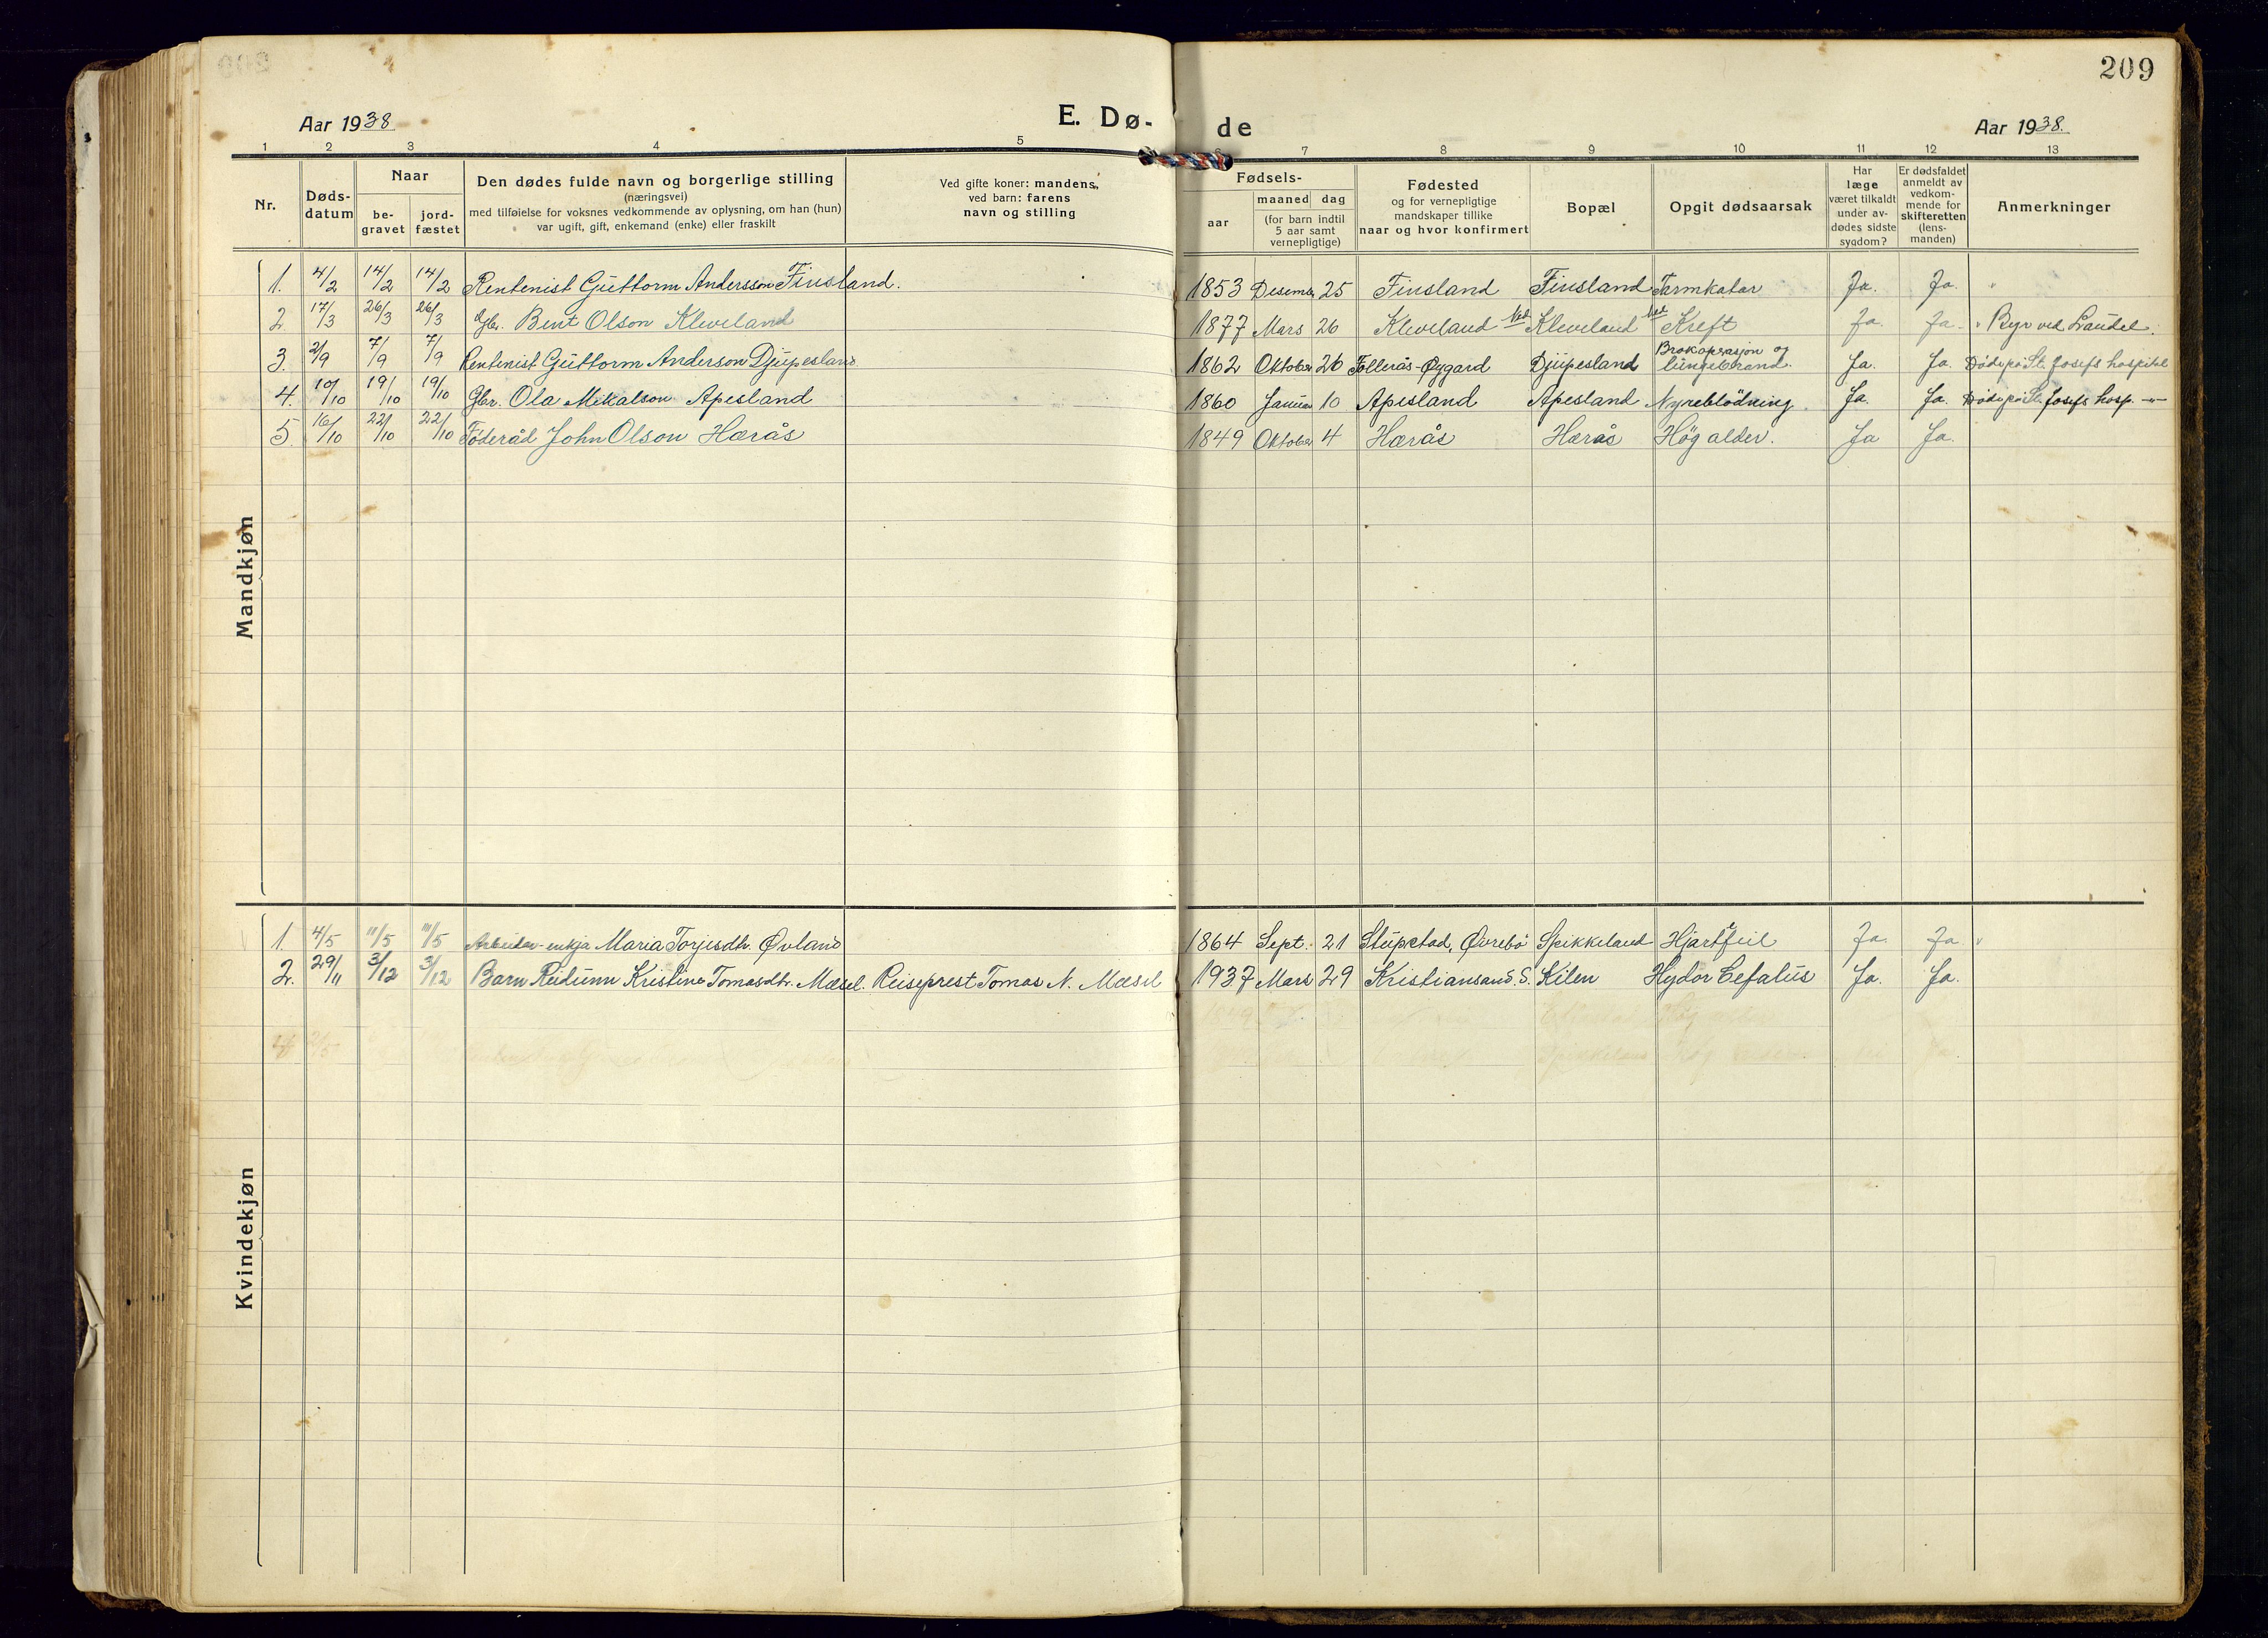 209
Aar 1938
E. Dø- de
Aar 1938.
1 2 3 4 5 6 7 8 9 10 11 12 13
Nr.
Døds-
datum
Naar
be-
gravet
jord-
fæstet
Den dødes fulde navn og borgerlige stilling
(næringsvei)
med tilføielse for voksnes vedkommende av oplysning, om han (hun)
var ugift, gift, enkemand (enke) eller fraskilt
Ved gifte koner: mandens,
ved barn: farens
navn og stilling
Fødsels-
aar
maaned dag
(for barn indtil
5 aar samt
vernepligtige)
Fødested
og for vernepligtige
mandskaper tillike
naar og hvor konfirmert
Bopæl
Opgit dødsaarsak
Har
læge
været tilkaldt
under av-
dødes sidste
sygdom?
Er dødsfaldet
anmeldt av
vedkom-
mende for
skifteretten
(lens-
manden)
Anmerkninger
Mandkjøn
1. 4/2 14/2 14/2 Rentenist Guttorm Andersson Finsland. 1853 Desembr 25 Finsland Finsland Tarmkatar Ja. Ja.
2. 17/3 26/3 26/3 Gbr. Bent Olson Kleveland 1877 Mars 26 Kleveland Ned. Kleveland Ned. Kreft Ja. Ja. Byr ved Laudel.
3. 2/9 7/9 7/9 Rentenist Guttorm Anderson Djupesland 1862 Oktober 26 Follerås-Øygard Djupesland Brokoprasjon og lungebrand. Ja. Ja. Døde på St. Josefs hospital
4. 10/10 19/10 19/10 Gbr. Ola Mikalson Apesland 1860 Januar 10 Apesland Apesland Nyreblödning. Ja. Ja. Døde på St. Josefs hosp. -"-
5. 16/10 22/10 22/10 Föderåd John Olson Hærås 1849 Oktober 4 Hærås Hærås Hög alder. Ja Ja.
Kvindekjøn
1. 4/5 11/5 11/5 Arbeidar-enkja Maria Torjesdtr. Øvland 1864 Sept. 21 Stupstad, Øvrebö Spikkeland Hjartefeil Ja. Ja.
2. 29/11 3/12 3/12 Barn Reidunn Kristine Tomasdtr. Mæsel. Reiseprest Tomas N. Mæsel 1937 Mars 29 Kristiansand. S. Kilen Hydor Cefalus Ja. Ja.